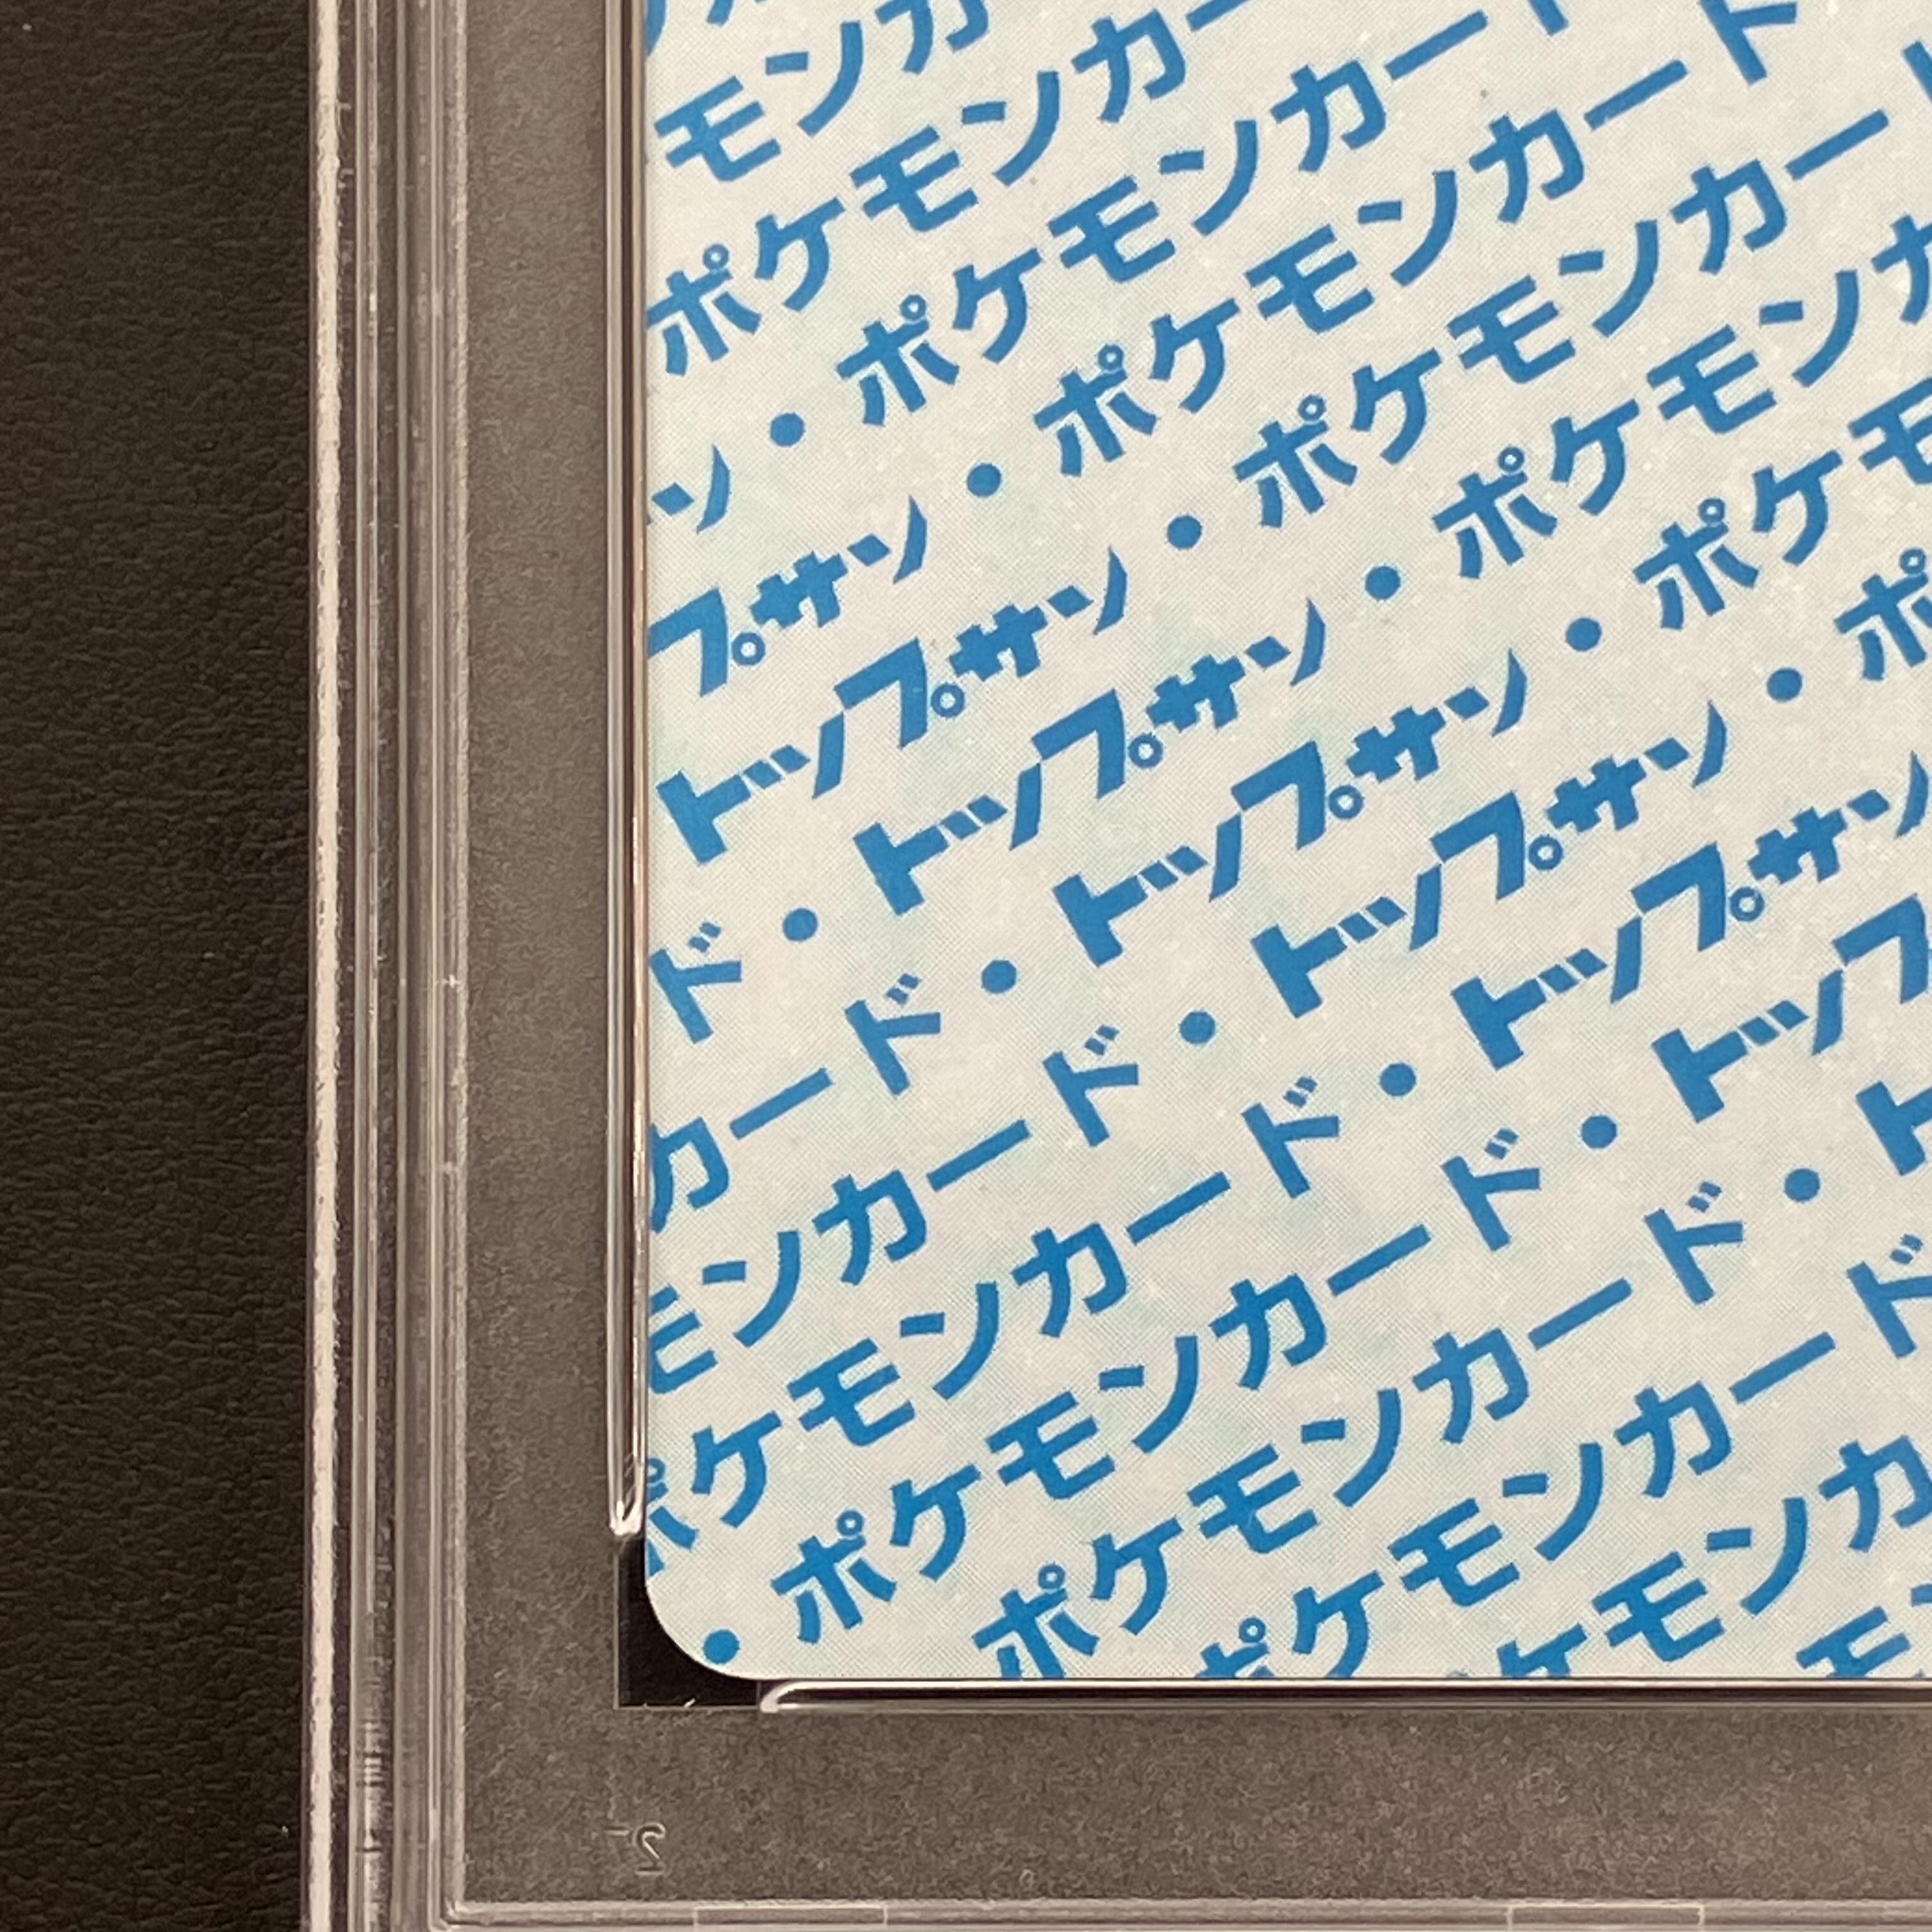 モンカ
ポケモンカー
ン・ポケモンカード
プサン・ポケモンカード
トップサン・ポケモンカー
ド・トップサン・ポケモンカ
カード・トップサン・ポケモ
モンカード・トップサン・ポ
ポケモンカード・トップサン
・ポケモンカード・トップ
ポケモンカード・ト
ポケモンカード
ケモンカ
モ